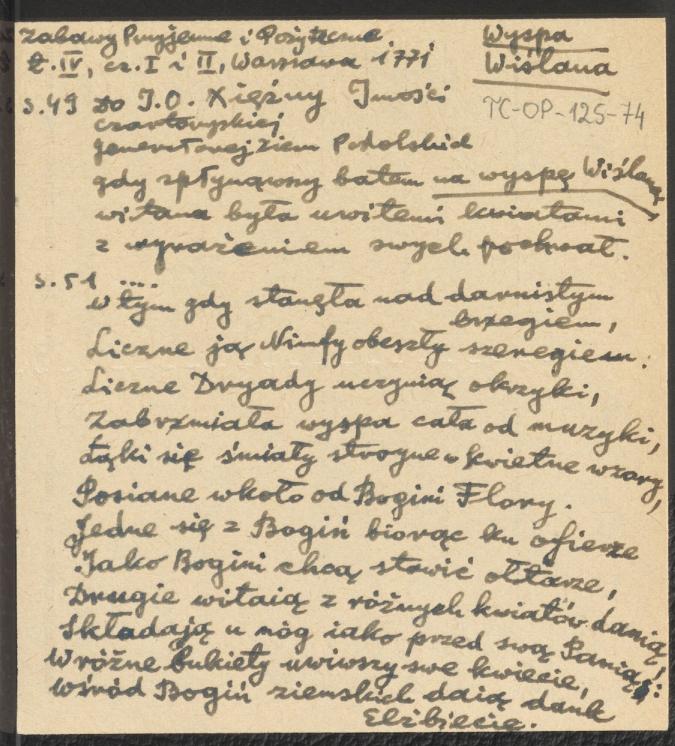 Zabawy Przyjemne i Pożyteczne
t. IV, cz. I i II, Warszawa 1771
Wyspa
Wiślana
TC-OP-125-74
s. 49 do J.O. Xiężny Jmości
czartoryskiej
Jenerałowej Ziem Podolskich
gdy spłynąwszy batem na wyspę Wiślaną
witana była uwitemi kwiatami
z wyrażeniem swych pochwał.
s. 51 ...
w tym gdy stanęła nad darnistym
brzegiem,
Liczne ją Nimfy obeszły szeregiem:
Liczne Dryady uczynią okrzyki,
Zabrzmiała wyspa cała od muzyki,
Łąki się śmiały stroyne w kwietne wzory,
Posiane wkoło od Bogini Flory.
Jedne się z Bogiń biorąc ku ofierze
Jako Bogini chcą stawić ołtarze,
Drugie witaią z różnych kwiatów danią,
Składają u nóg iako przed swą Panią:
W różne bukiety uwiwszy swe kwiecie,
Wśród Bogiń ziemskich daią dank
Elżbiecie.